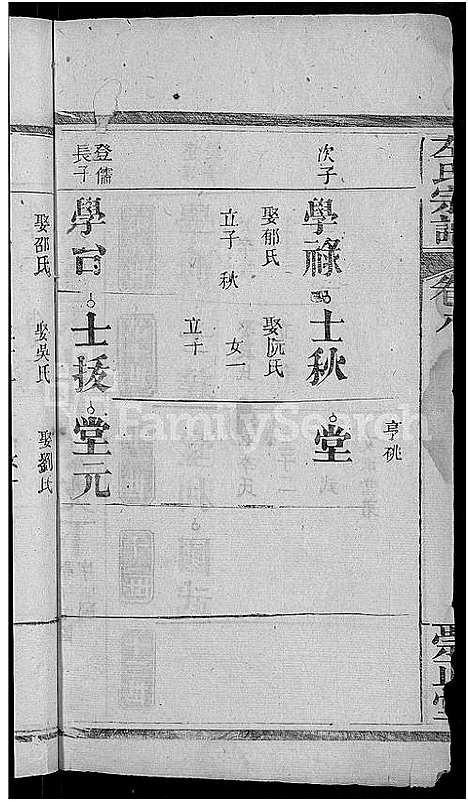 氏宗譜
卷八
亨桃
次子
學祿
士秋
堂
娶郁氏
娶阮氏
立子 秋
女一
立子
登儒
長子
學台
士援
堂元
娶邵氏
娶吳氏
娶劉氏
FamilySearch